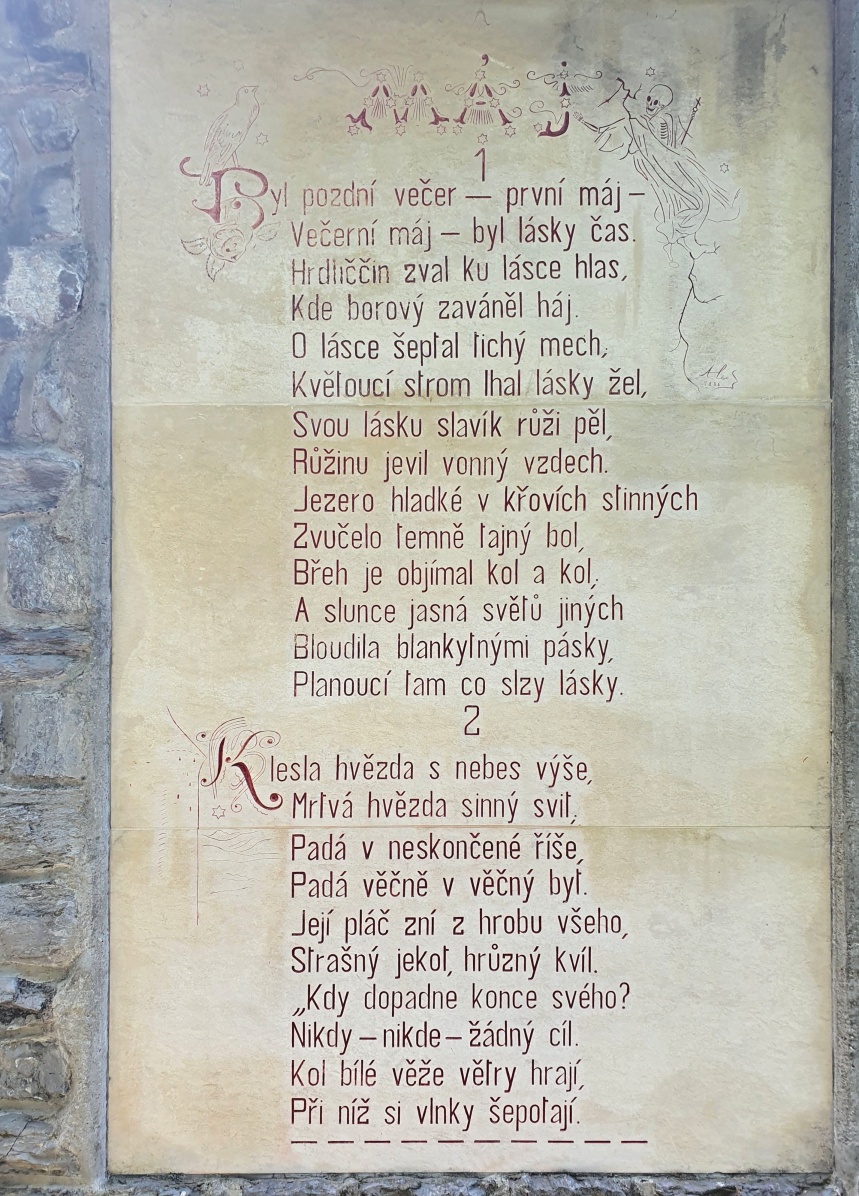 MÁJ
1
Byl pozdní večer — první máj –
Večerní máj – byl lásky čas.
Hrdliččin zval ku lásce hlas,
Kde borový zaváněl háj.
O lásce šeptal tichý mech;
Květoucí strom lhal lásky žel,
Svou lásku slavík růži pěl,
Růžinu jevil vonný vzdech.
Jezero hladké v křovích stinných
Zvučelo temně tajný bol,
Břeh je objímal kol a kol;
A slunce jasná světů jiných
Bloudila blankytnými pásky,
Planoucí tam co slzy lásky.
2
Klesla hvězda s nebes výše,
Mrtvá hvězda sinný svit;
Padá v neskončené říše,
Padá věčně v věčný byt.
Její pláč zní z hrobu všeho,
Strašný jekot, hrůzný kvíl.
„Kdy dopadne konce svého?
Nikdy – nikde – žádný cíl.
Kol bílé věže větry hrají,
Při níž si vlnky šepotají.